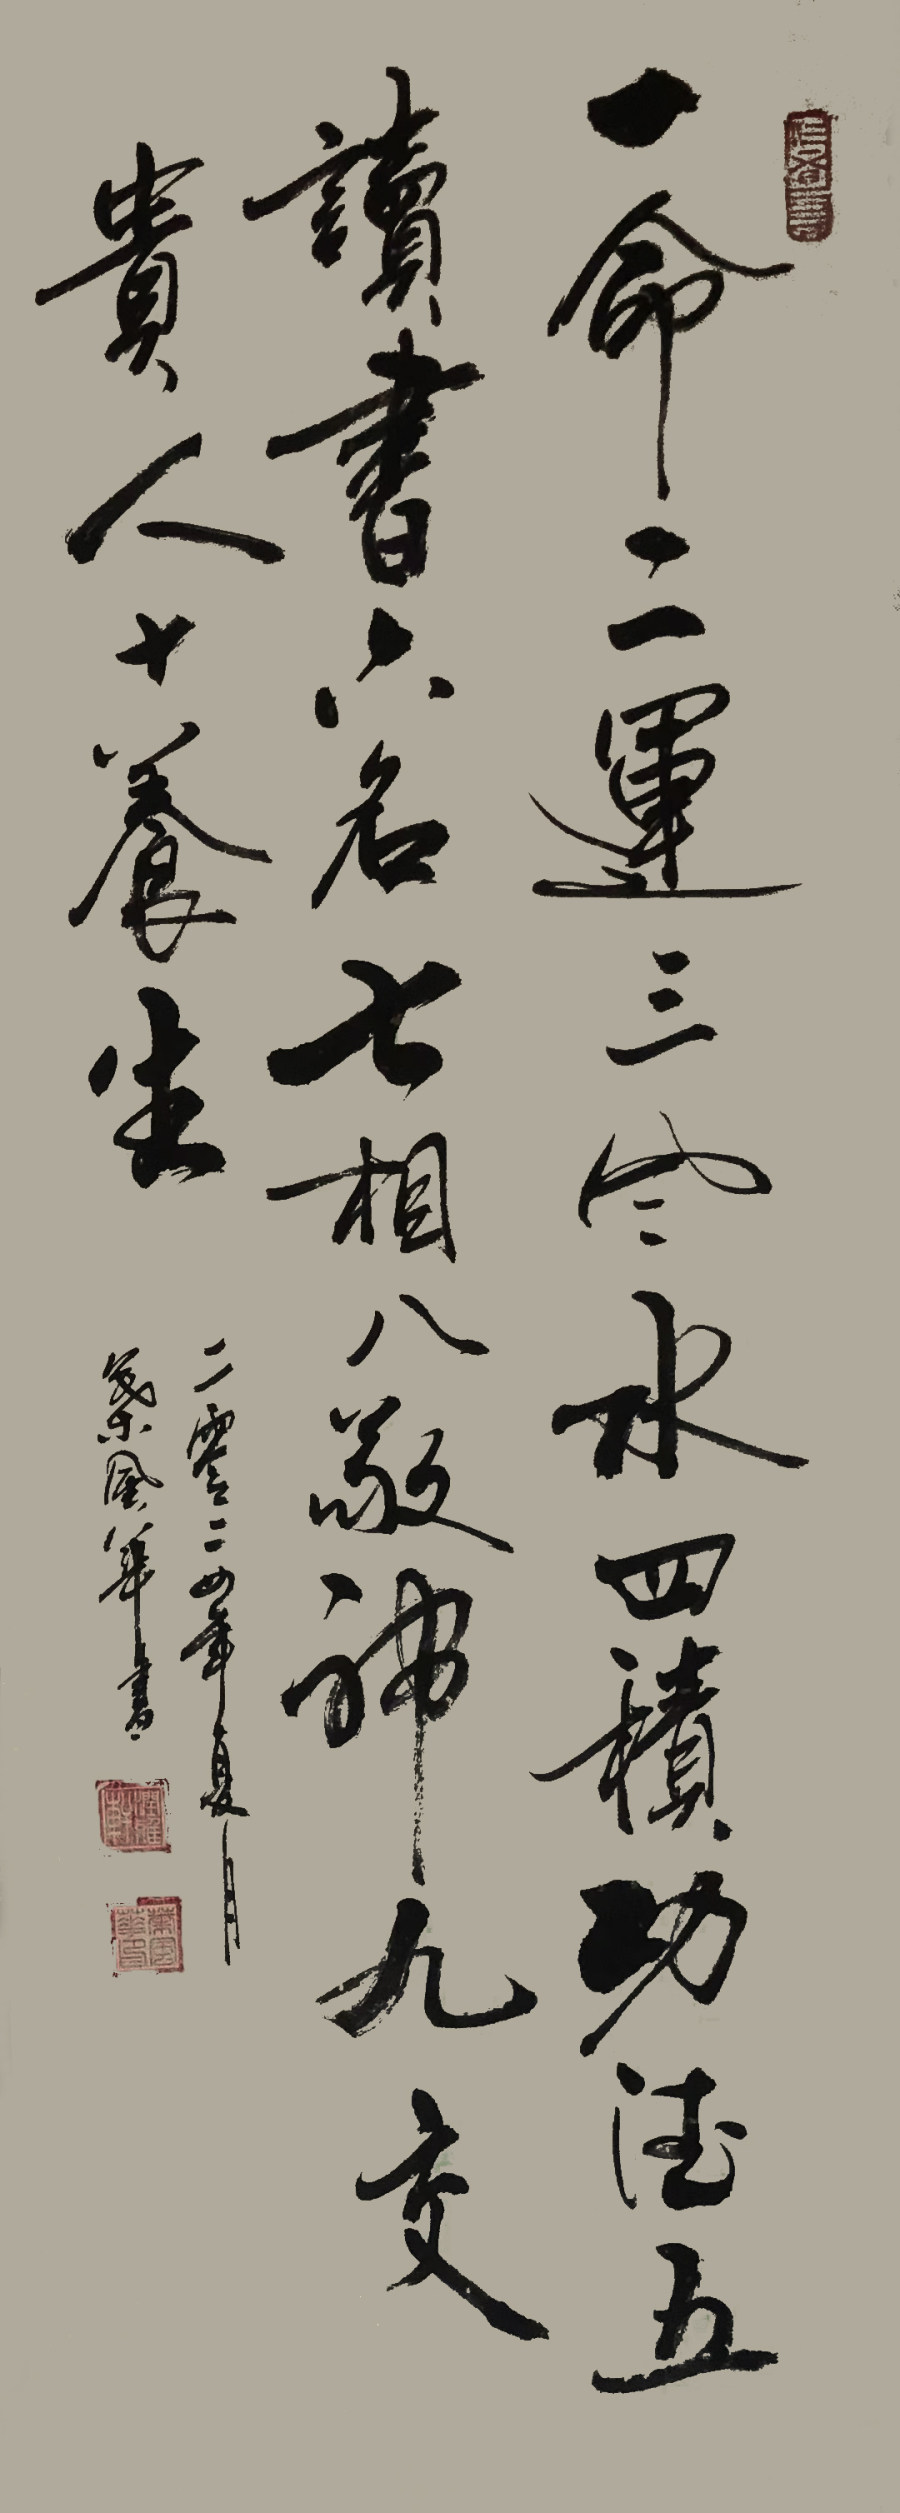 一命二運三风水四積功德五
讀書六名七相八敬神九交
貴人十養生
二零二四年夏月
葉国華書